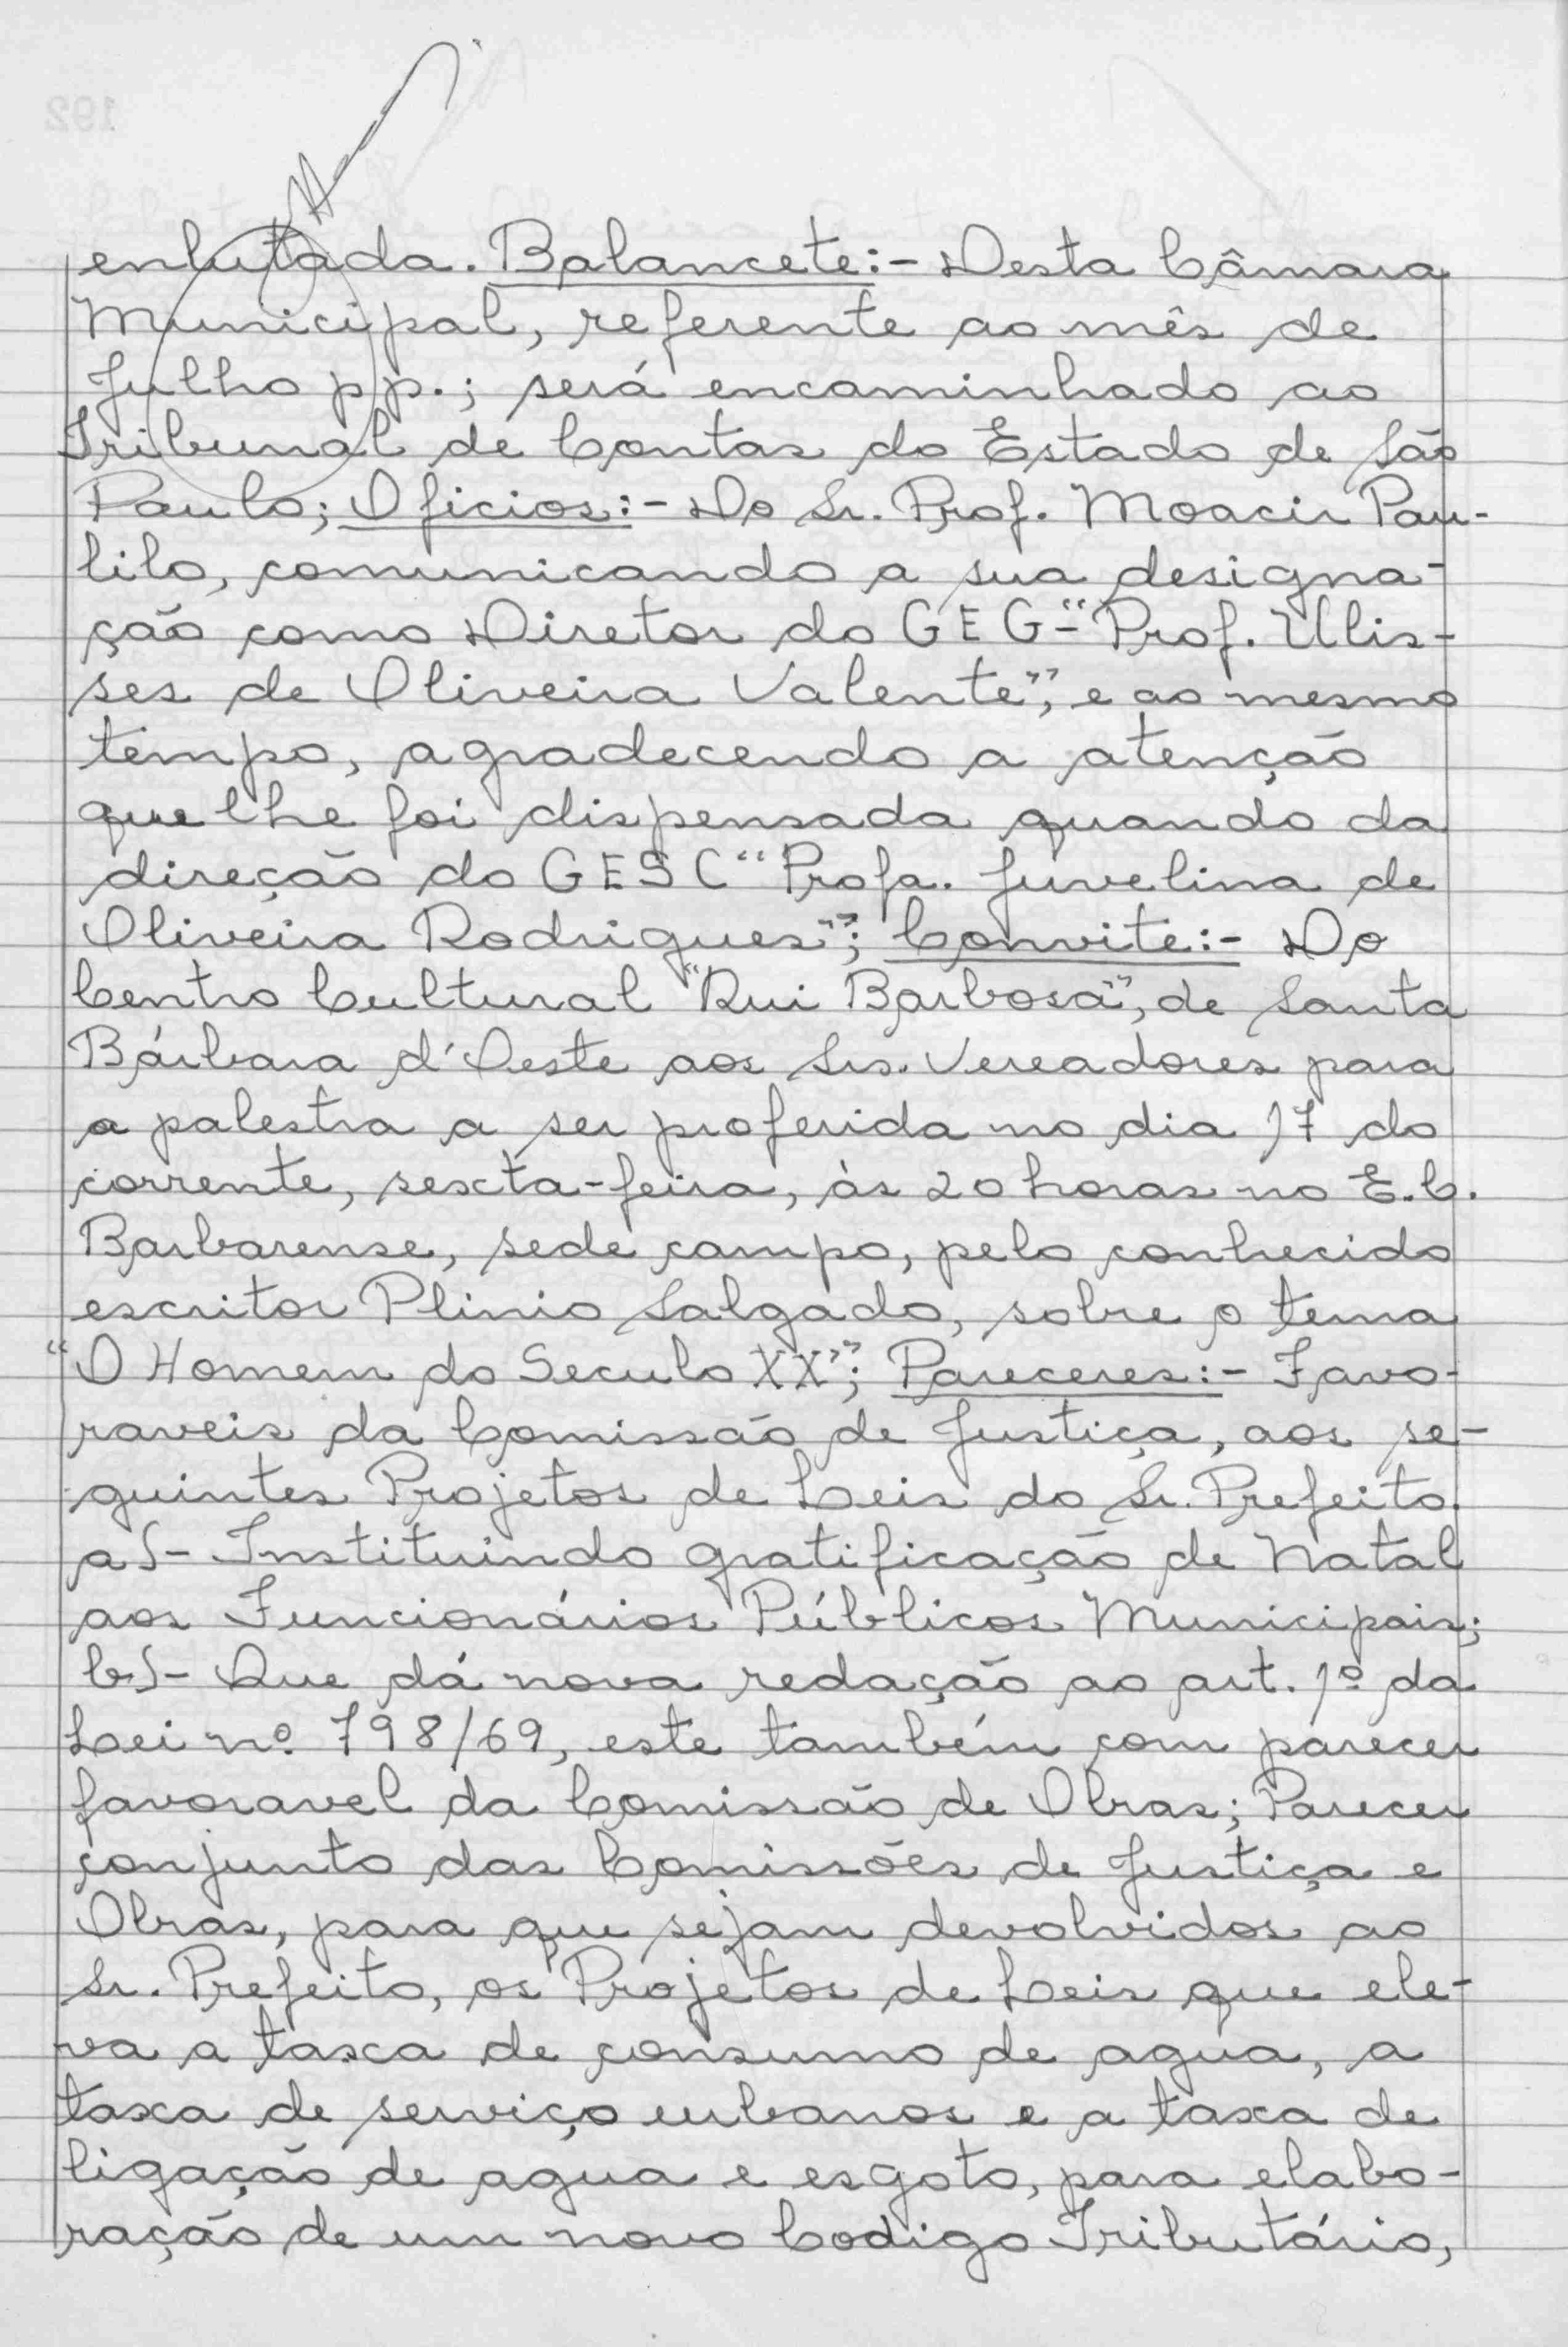 enlutada. Balancete:- Desta Câmara
Municipal, referente ao mês de
Julho pp.; será encaminhado ao
Tribunal de Contas do Estado de São
Paulo; Oficios:- Do Sr. Prof. Moacir Pau-
lilo, comunicando a sua designa-
ção como Diretor do GEG-"Prof. Ulis-
ses de Oliveira Valente", e ao mesmo
tempo, agradecendo a atenção
que lhe foi dispensada quando da
direção do GESC "Profa. Juvelina de
Oliveira Rodrigues"; Convite:- Do
Centro Cultural "Rui Barbosa", de Santa
Bárbara d'Oeste aos Srs. Vereadores para
a palestra a ser proferida no dia 17 do
corrente, sexta-feira, às 20 horas no E.C.
Barbarense, sede campo, pelo conhecido
escritor Plinio Salgado, sobre o tema
"O Homem do Seculo XX"; Pareceres:- Favo-
raveis da Comissão de Justiça, aos se-
guintes Projetos de Leis do Sr. Prefeito.
a)- Instituindo gratificação de Natal
aos Funcionários Públicos Municipais;
b)- Que dá nova redação ao art. 1º da
Lei nº 798/69, este também com parecer
favoravel da Comissão de Obras; Parecer
conjunto das Comissões de Justiça e
Obras, para que sejam devolvidos ao
Sr. Prefeito, os Projetos de Leis que ele-
va a taxa de consumo de agua, a
taxa de serviço urbanos e a taxa de
ligação de agua e esgoto, para elabo-
ração de um novo Codigo Tributário,